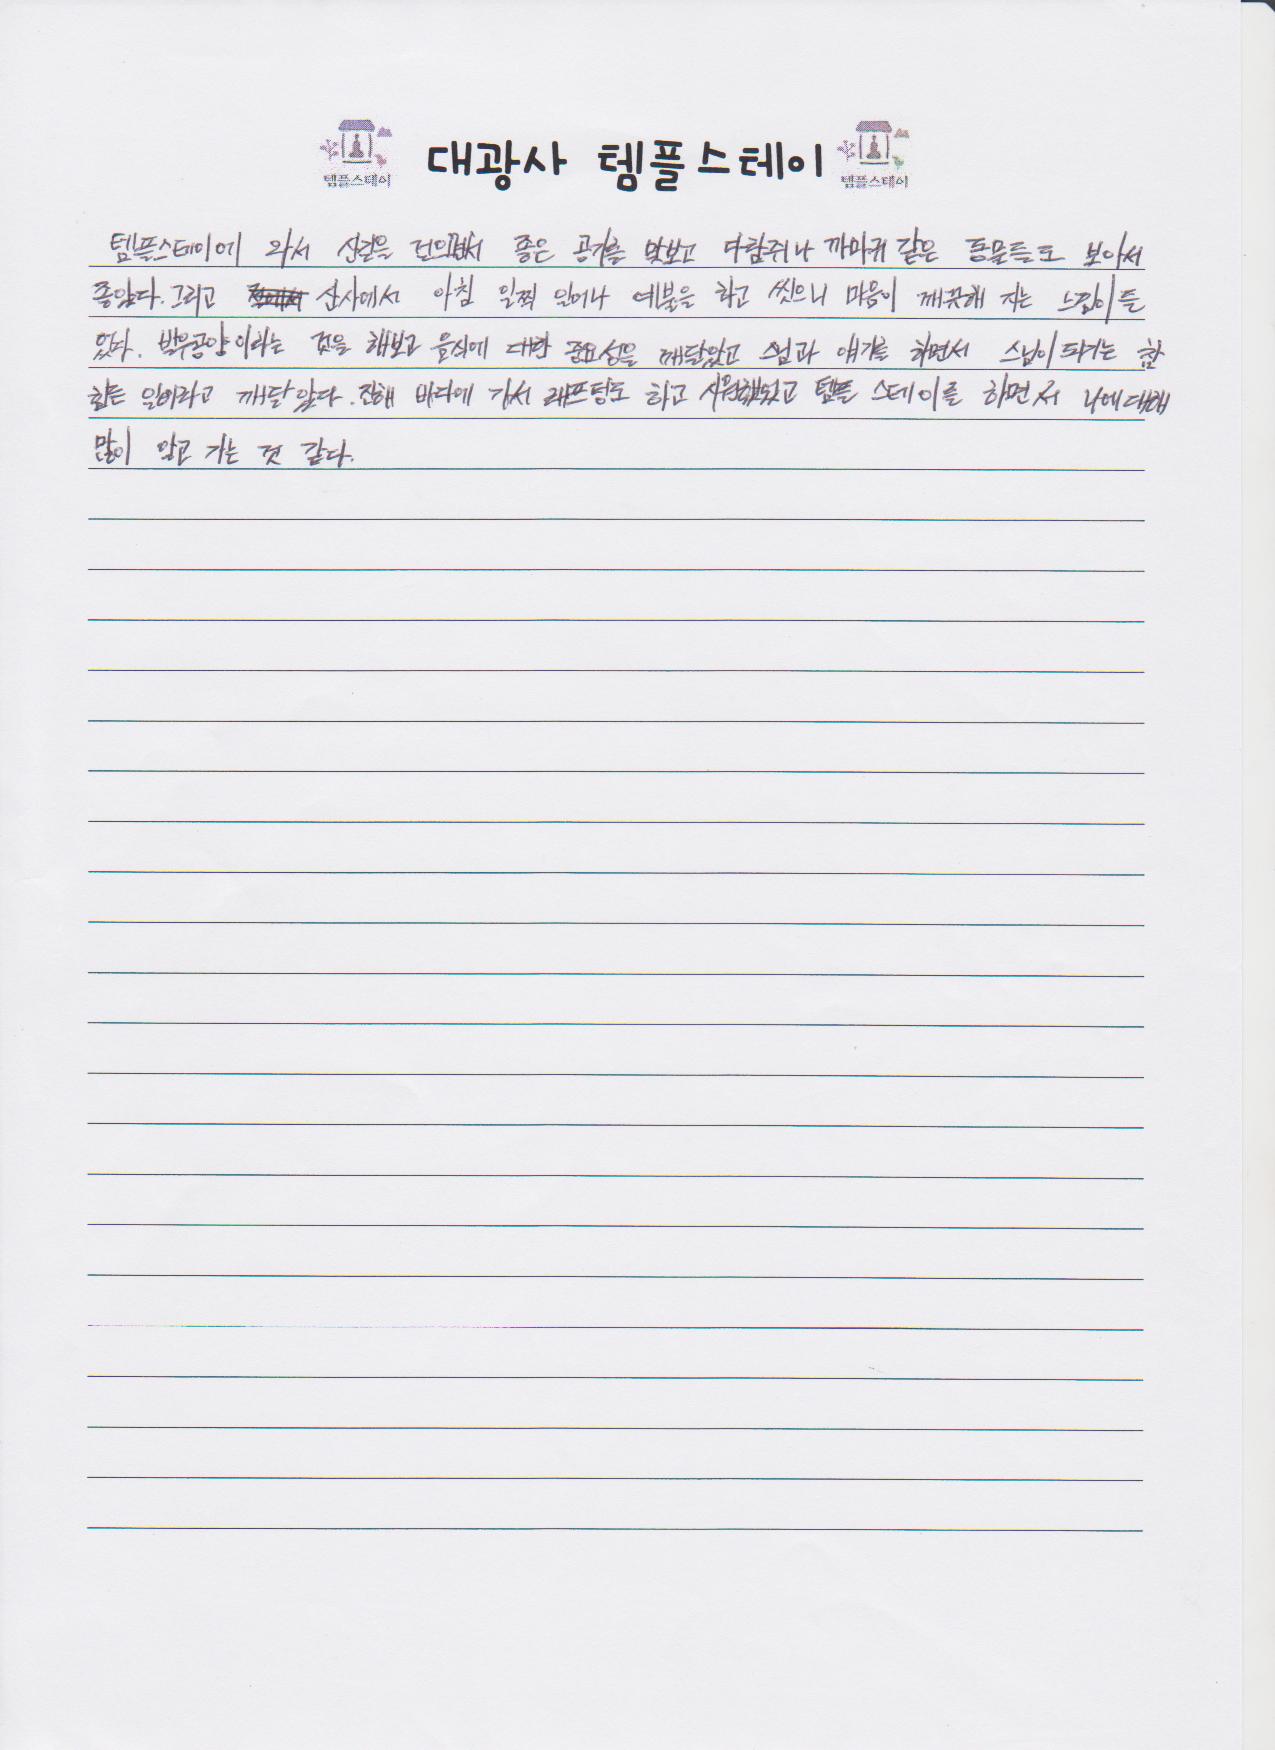 템플스테이 대광사 템플스테이 템플스테이
템플스테이에 와서 산길을 좋은 공기를 맛보고 다람쥐나 까마귀 같은 동물들도 보아서
좋았다. 그리고 산사에서 아침 일찍 일어나 예불을 하고 씻으니 마음이 깨끗해 지는 느낌이 들
었다. 발우공양이라는 것을 해보고 음식에 대한 중요성을 깨달았고 스님과 얘기를 하면서 스님이 되기는 참
힘든 일이라고 깨달았다. 진해 바다에 가서 래프팅도 하고 템플 스테이를 하면서 나에 대해
많이 알고 가는 것 같다.